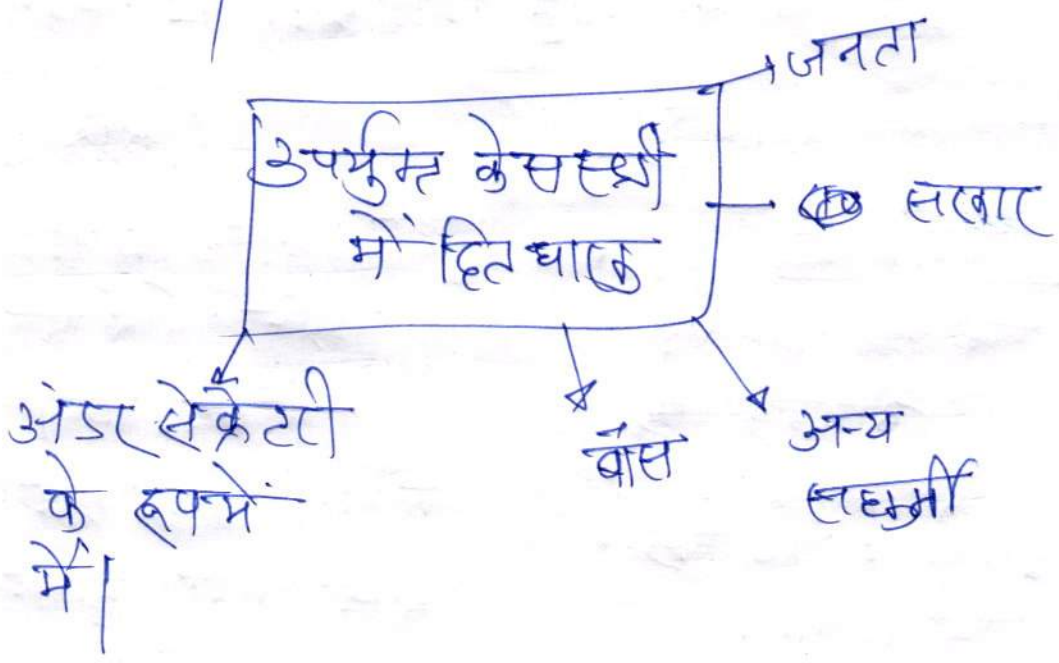 जनता
उपर्युक्त केस स्टडी
में हित धारक
सरकार
अंडर सेक्रेटरी
के रूप में
मैं।
बॉस
अन्य
सहकर्मी